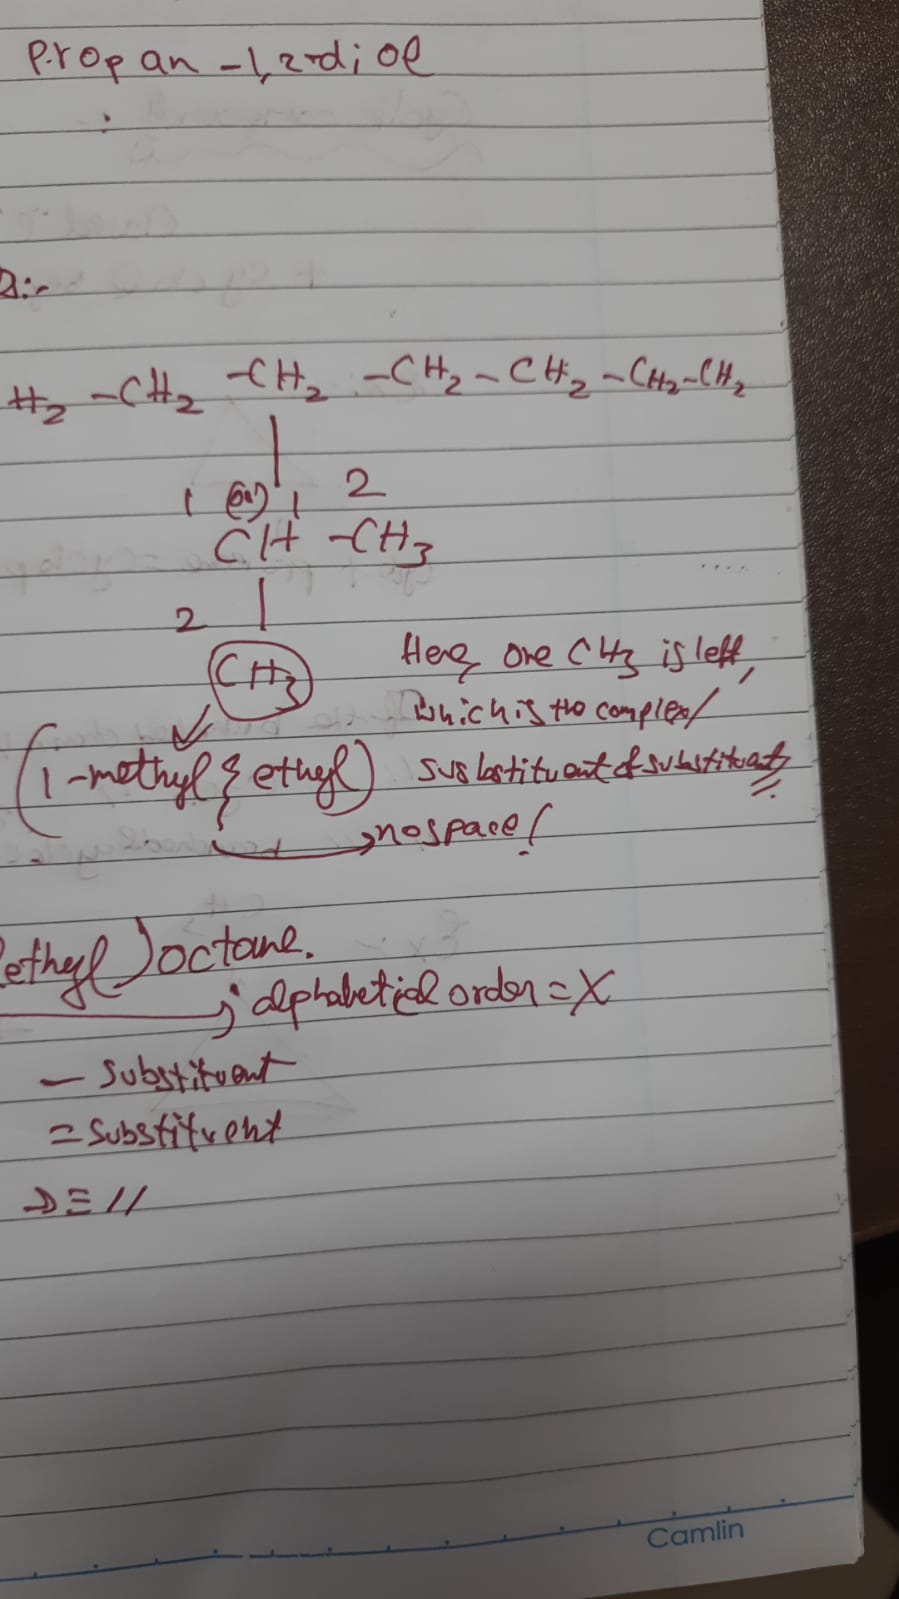 Propan-1,2-diol
D:-
H2 -CH2 -CH2 -CH2-CH2-CH2-CH2
1 (or) 1 2
CH -CH3
2
CH3
Here, one CH3 is left,
which is the complex/
(1-methyl ethyl) suslostituent of substituent
no space!
ethyl) octane.
; alphabetical order = X
- substituent
= substituent
≡ //
Camlin